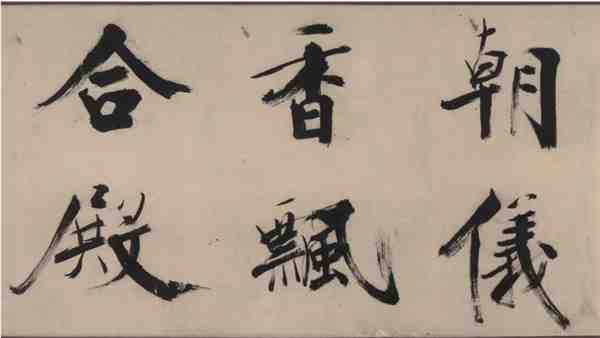 朝儀
香飄
合殿